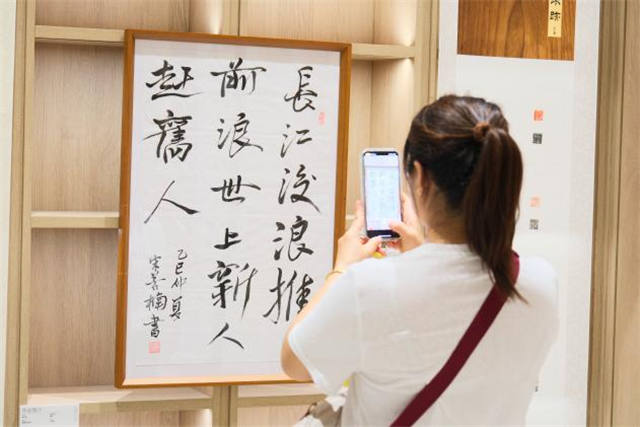 長江後浪推
前浪世上新人
赶舊人
乙巳仲夏
宋楠書